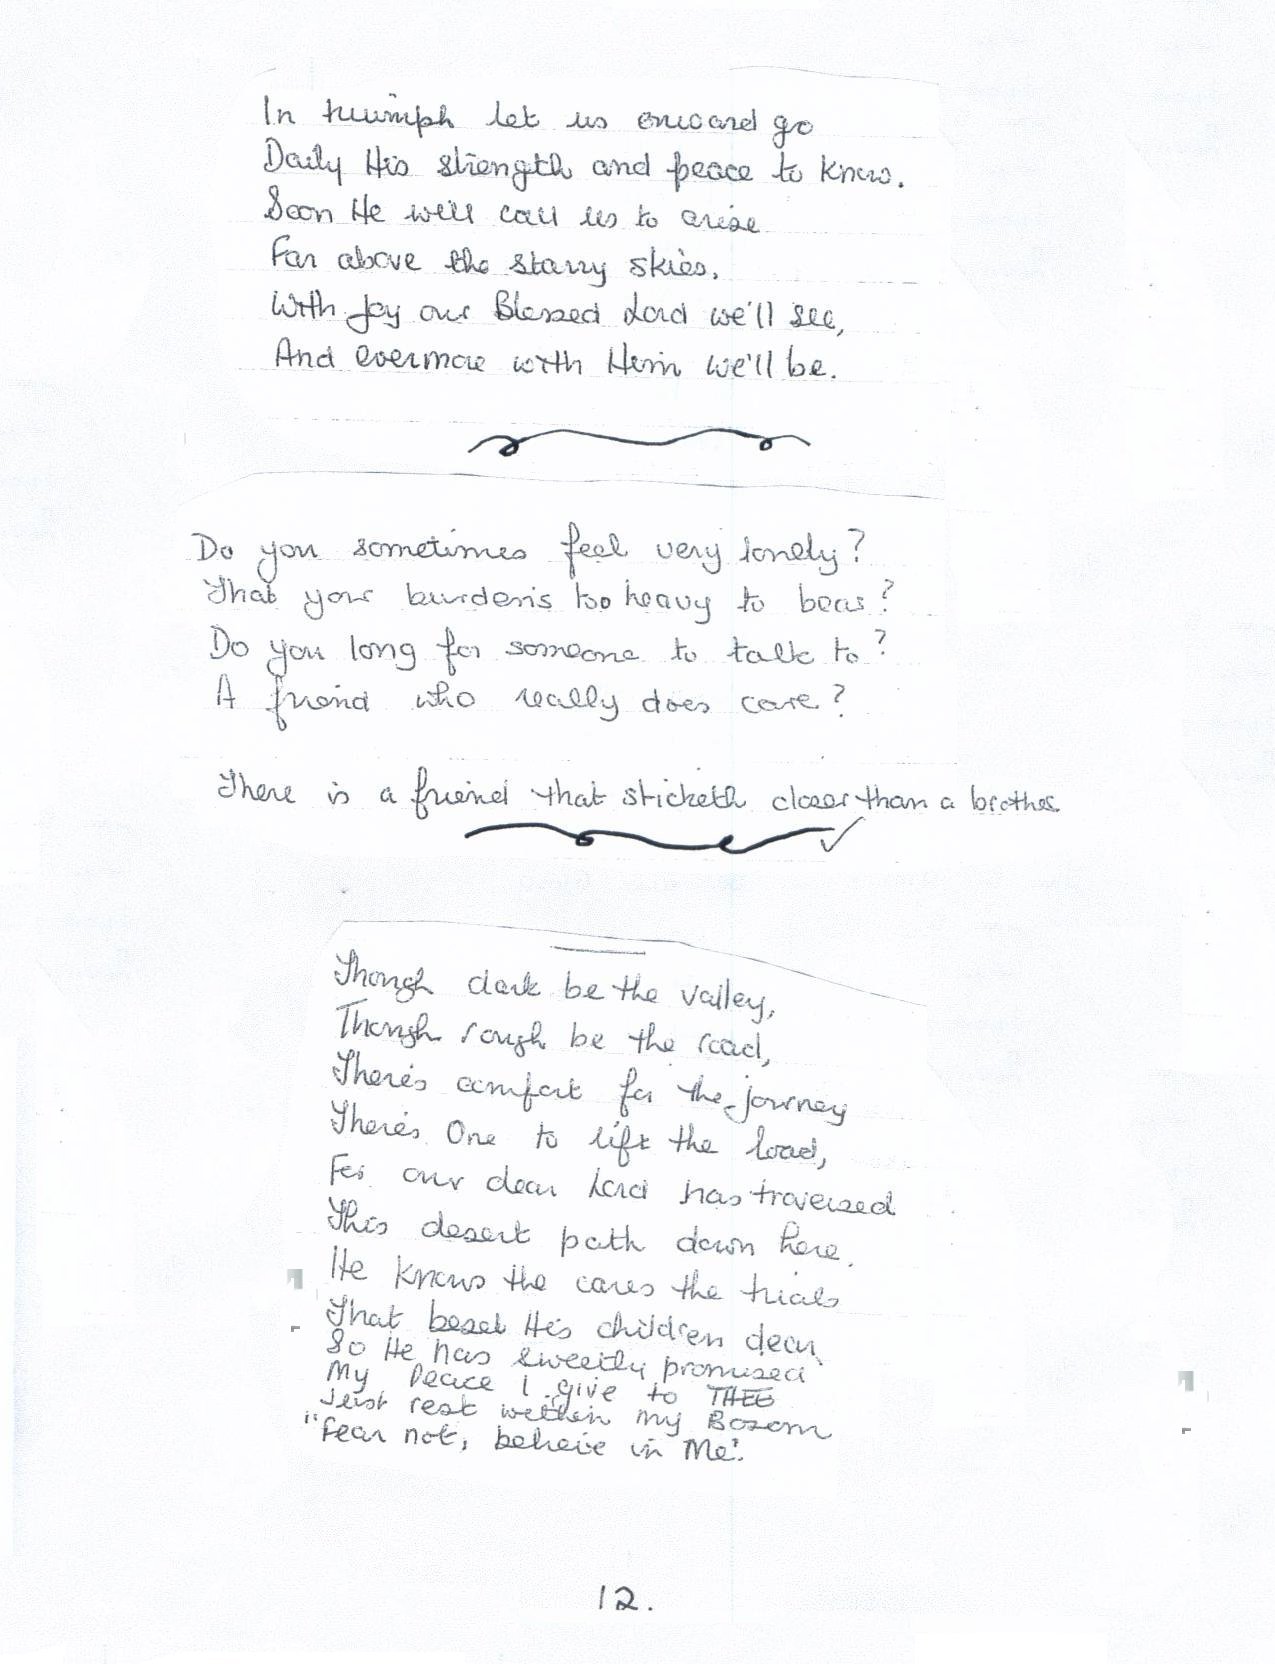 In triumph let us onward go
Daily His strength and peace to know.
Soon He will call us to arise
Far above the starry skies.
With Joy our Blessed Lord we'll see,
And evermore with Him we'll be.
Do you sometimes feel very lonely?
That your burden's too heavy to bear?
Do you long for someone to talk to?
A friend who really does care?
There is a friend that sticketh closer than a brother
Though dark be the valley,
Though rough be the road,
There's comfort for the journey
There's One to lift the load,
For our dear Lord has traversed
This desert path down here.
He knows the cares the trials
That beset His children dear,
So He has sweetly promised
My Peace I give to THEE
Just rest within my Bosom
"Fear not, believe in Me".
12.